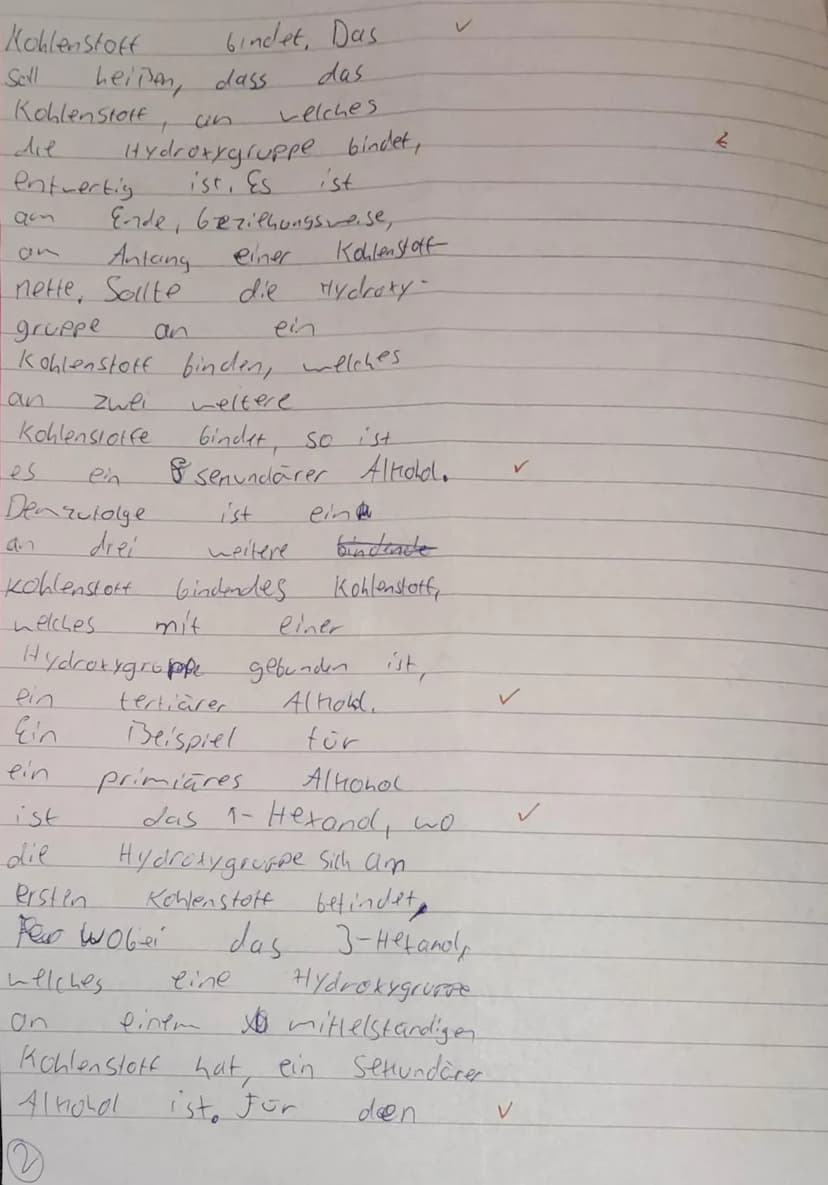 Kohlenstoff bindet. Das ✓
soll heißen, dass das
Kohlenstoff, an welches
die Hydroxygruppe bindet,
entwertig ist. Es ist
am Ende, beziehungsweise,
an Anfang einer Kohlenstoff
kette. Sollte die Hydroxy-
gruppe an ein
Kohlenstoff binden, welches
an zwei weitere
Kohlenstoffe bindet, so ist
es ein sekundärer Alkohol. ✓
Demzufolge ist ein
an drei weitere bindende
Kohlenstoff bindendes Kohlenstoff,
welches mit einer
Hydroxygruppe gebunden ist,
ein tertiärer Alkohol. ✓
Ein Beispiel für
ein primäres Alkohol
ist das 1-Hexanol, wo ✓
die Hydroxygruppe sich am
ersten Kohlenstoff befindet,
wobei das 3-Hexanol,
welches eine Hydroxygruppe
an einem mittelständigen
Kohlenstoff hat, ein sekundärer
Alkohol ist. Für den ✓
2